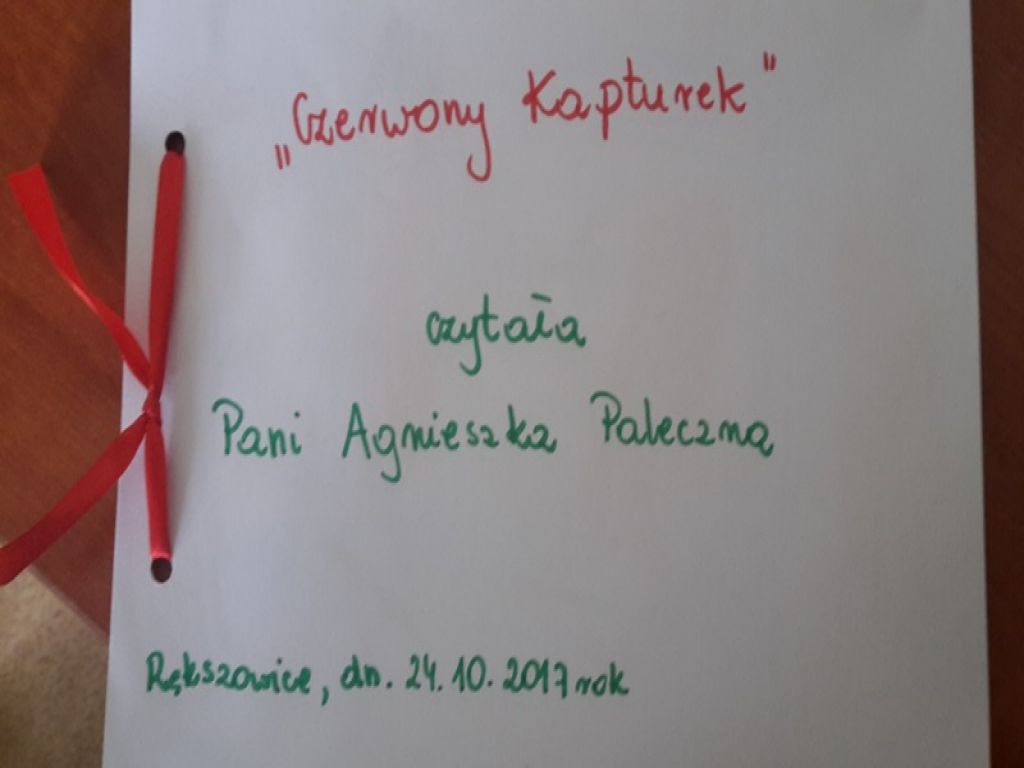 „Czerwony Kapturek"
czytała
Pani Agnieszka Paleczna
Rększowice, dn. 24.10.2017 rok